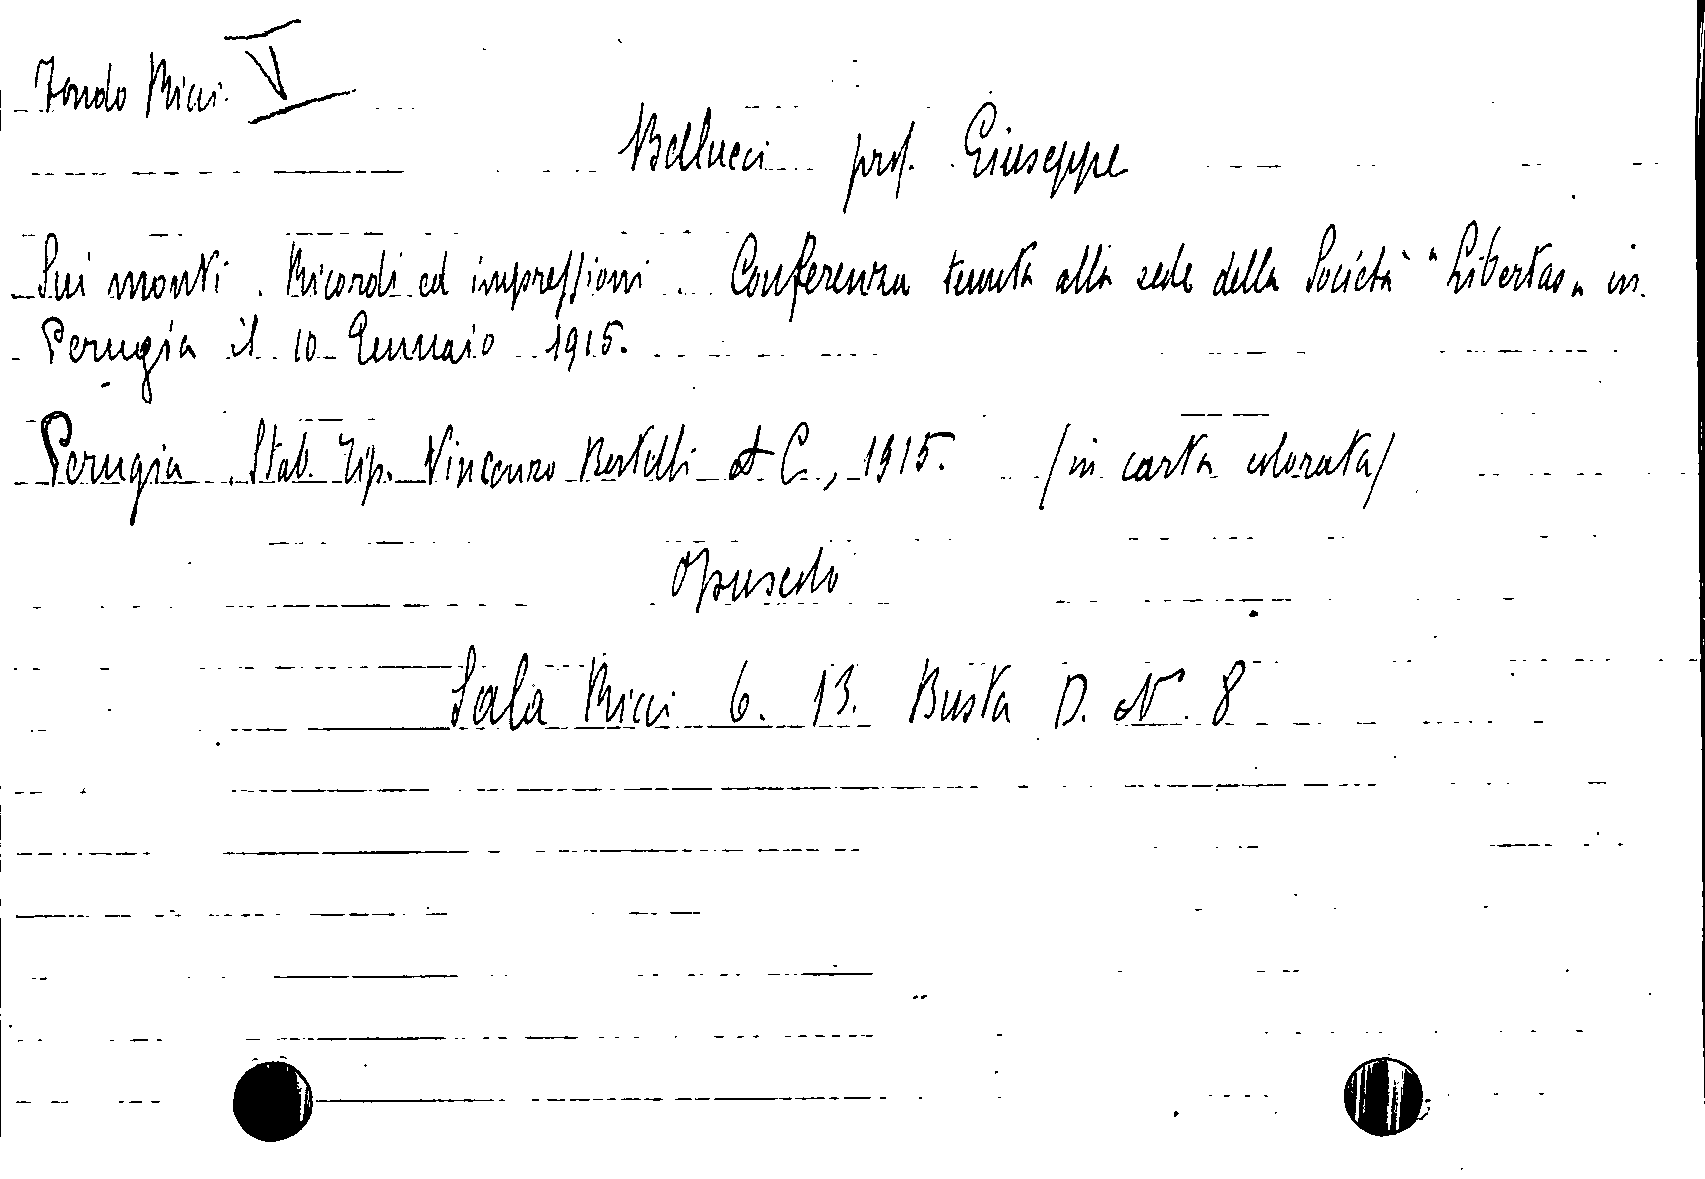 Fondo Ricci. V
Bellucci prof. Giuseppe
Sui monti. Ricordi ed impressioni. Conferenza tenuta alla sede della Società "Libertas" in
Perugia il 10 Gennaio 1915.
Perugia. Stab. Tip. Vincenzo Bartelli et C., 1915. (in carta colorata)
Opuscolo
Sala Ricci 6. 13. Busta D. N. 8